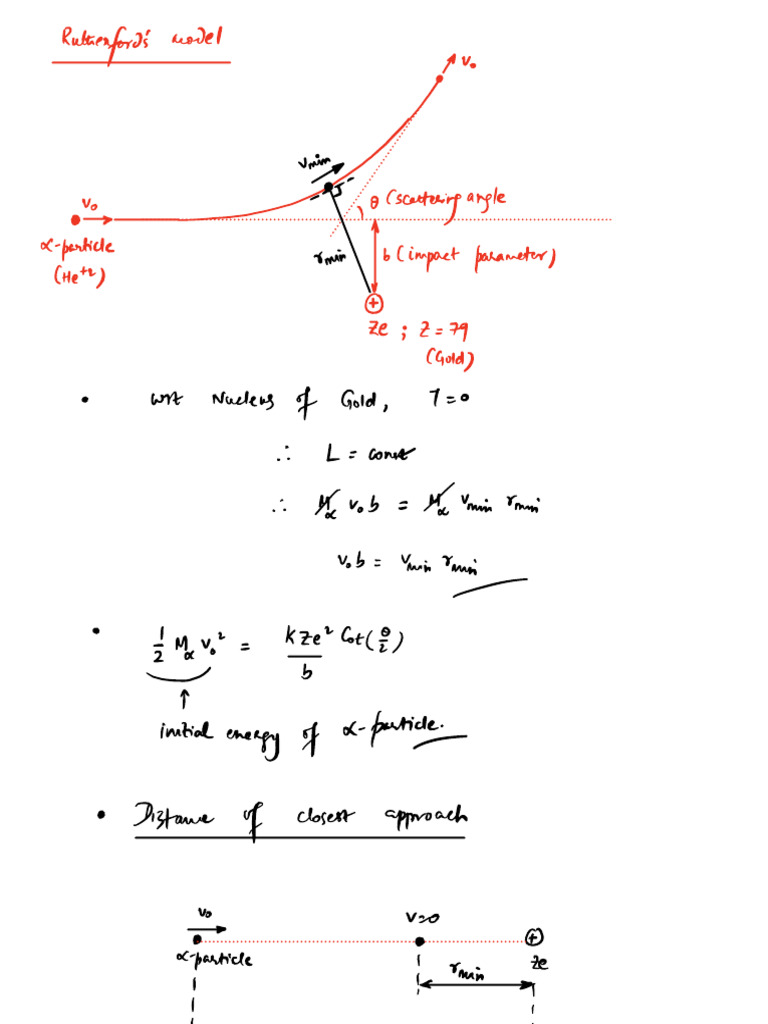 Rutherford's model
v₀
v_min
v₀
θ (scattering angle
α-particle
(He⁺²)
r_min
b (impact parameter)
+
Ze ; Z = 79
(Gold)
• wrt Nucleus of Gold, τ=0
∴ L = const
∴ M_α v₀ b = M_α v_min r_min
v₀b = v_min r_min
• 1/2 M_α v₀² = KZe² Cot(θ/2) / b
↑
initial energy of α-particle.
• Distance of closest approach
v₀
v=0
+
α-particle
Ze
r_min